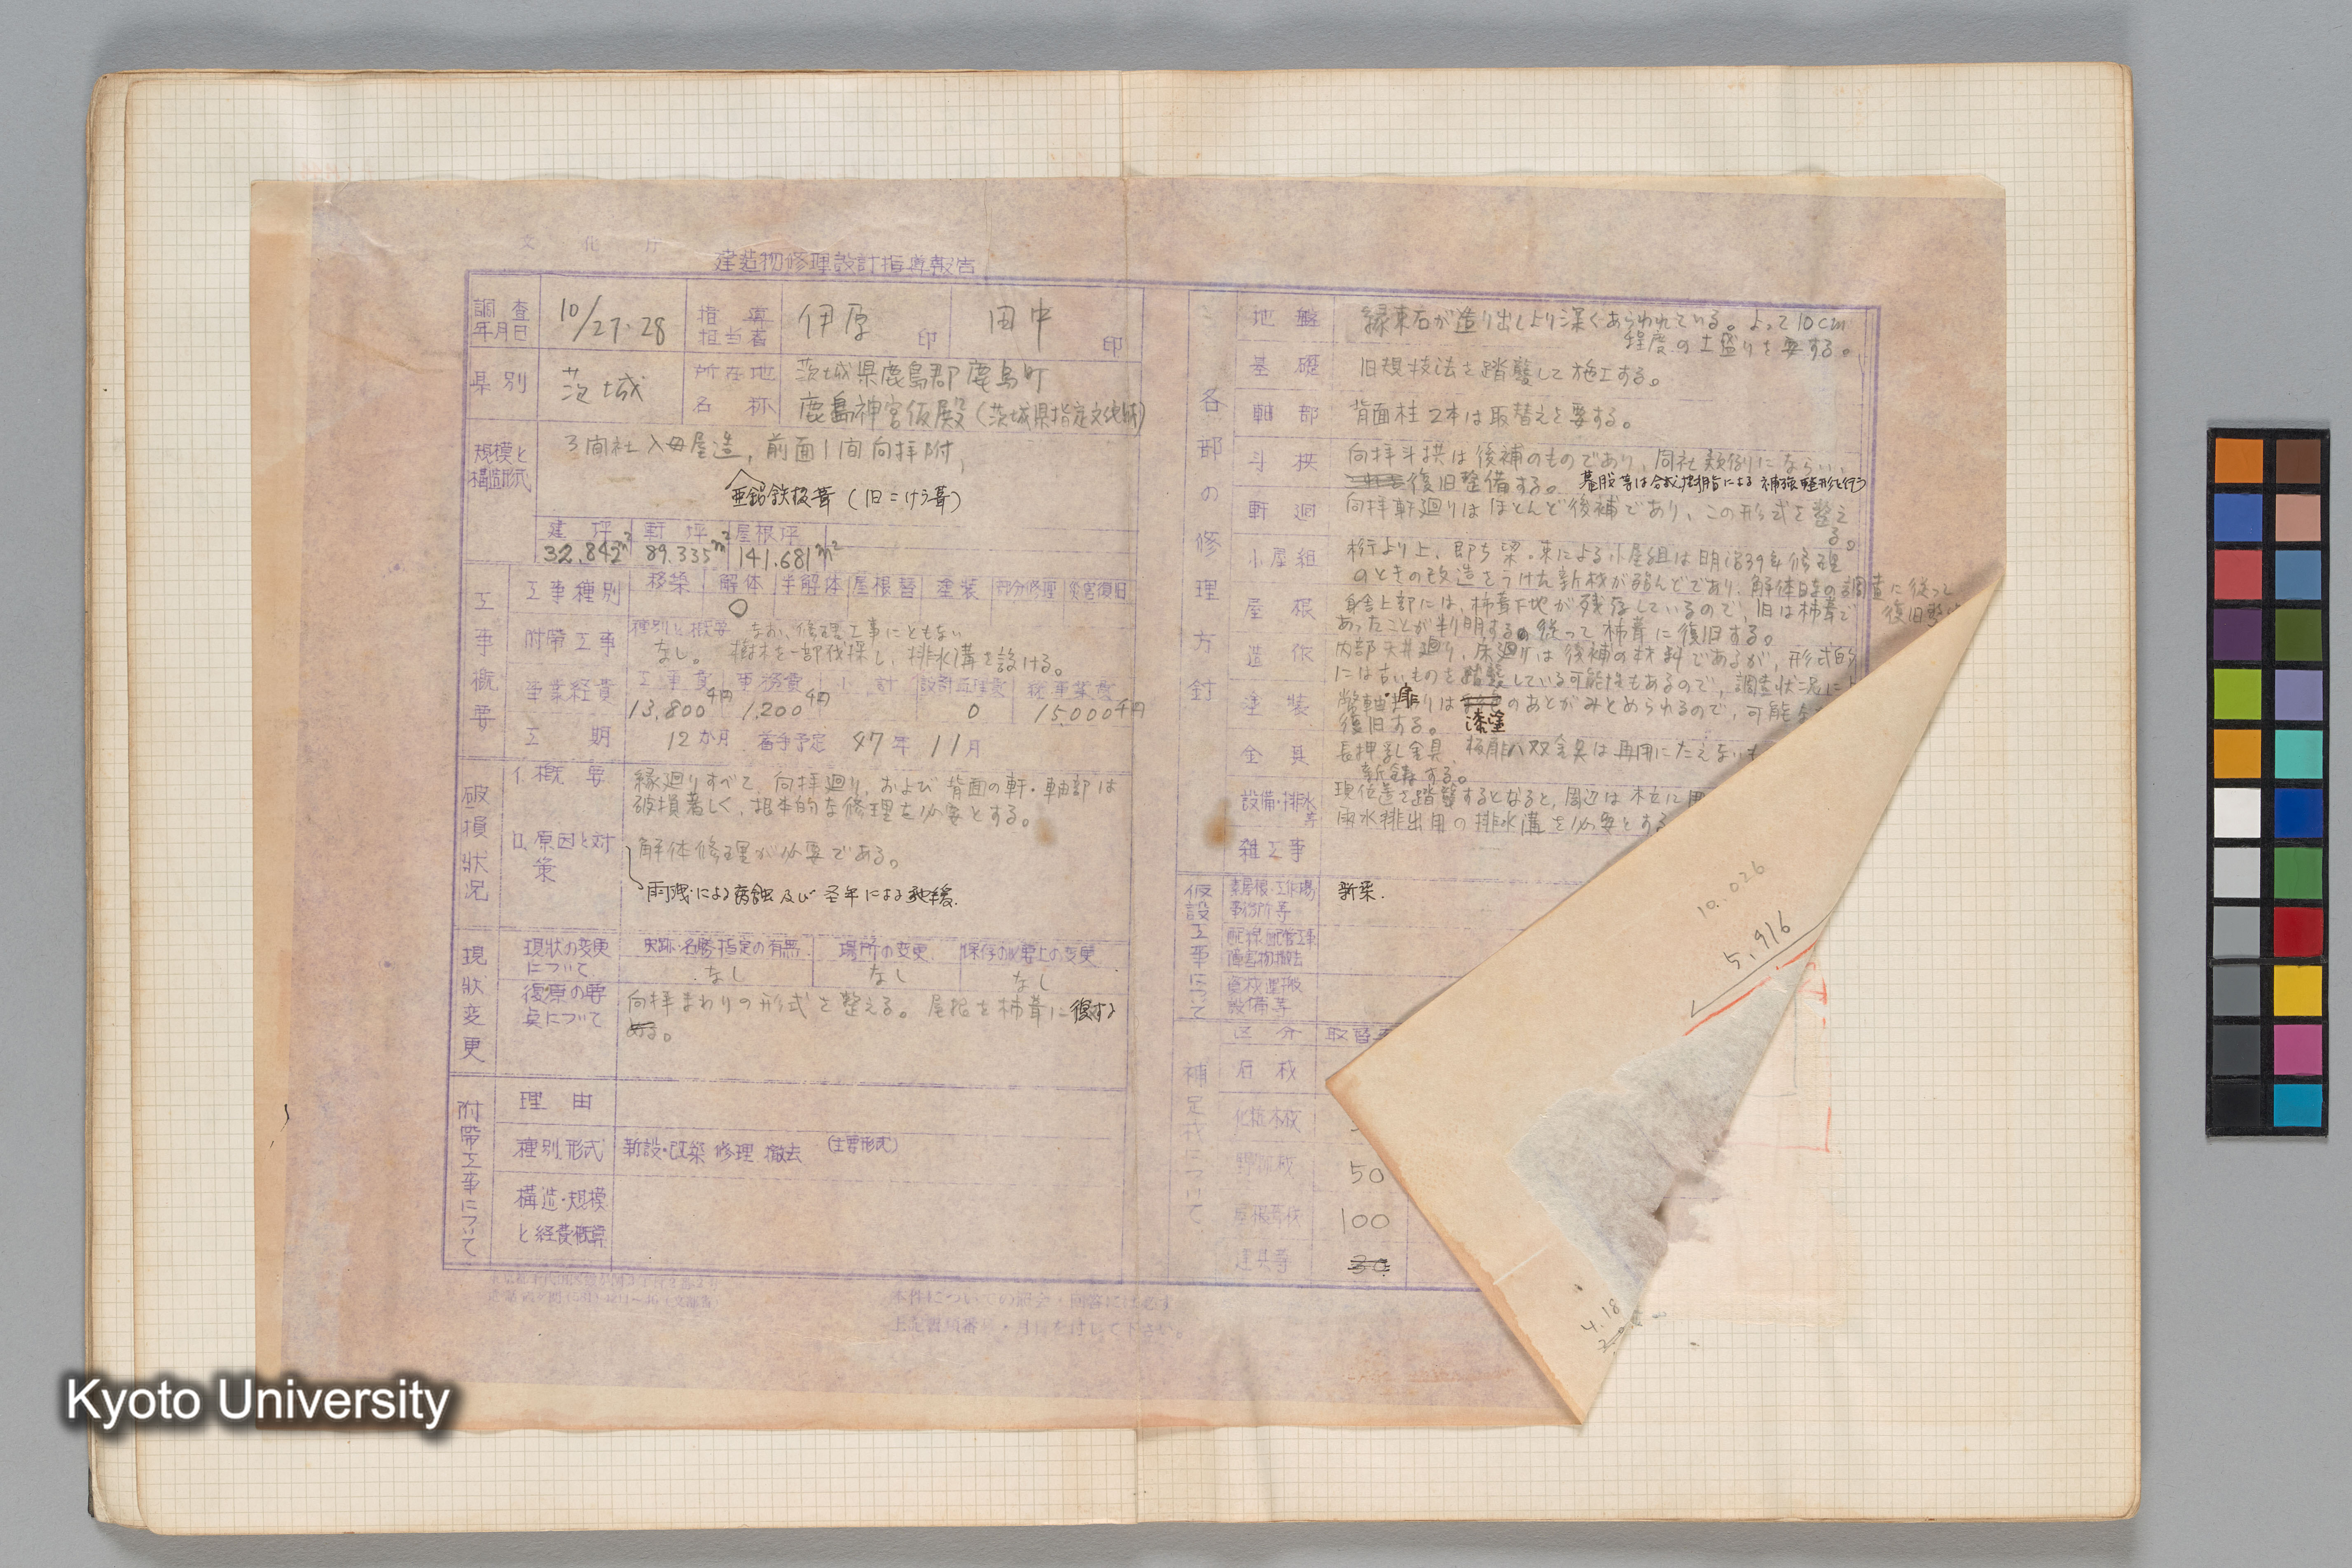 文化庁
建造物修理設計指導報告
調査年月日 10/27・28 指導担当者 伊原 印 田中 印
県別 茨城 所在地 茨城県鹿島郡鹿島町
名称 鹿島神宮仮殿(茨城県指定文化財)
規模と構造形式 3間社入母屋造,前面1間向拝附,
亜鉛鉄板葺(旧こけら葺)
建坪 軒坪 屋根坪
32.842m² 89.335m² 141.681m²
工事概要
工事種別 移築 解体 半解体 屋根替 塗装 部分修理 災害復旧
○
附帯工事 種別と概要 なお、修理工事にともない
なし。 樹木を一部伐採し、排水溝を設ける。
事業経費 工事費 事務費 小計 設計監理費 総事業費
13,800千円 1,200千円 0 15,000千円
工期 12か月 着手予定 47年11月
破損状況
イ.概要 縁廻りすべて、向拝廻り、および背面の軒・軸部は
破損著しく、根本的な修理を必要とする。
ロ.原因と対策 解体修理が必要である。
雨洩による腐蝕及び
現状変更
現状の変更について 史跡・名勝指定の有無 場所の変更 保存の必要上の変更
なし なし なし
復原の要点について 向拝まわりの形式を整える。屋根を柿葺に復する
附帯工事について
理由
種別.形式 新設・改築 修理 撤去 (主要形式)
構造・規模
と経費概算
本件についての照会・回答には必ず
上記書類番号・月日を付して下さい。
各部の修理方針
地盤 縁束石が造り出しより深くあらわれている。よって10cm
程度の土盛りを要する。
基礎 旧規技法を踏襲して施工する。
軸部 背面柱2本は取替えを要する。
斗栱 向拝斗栱は後補のものであり、同社類例にならい、
復旧整備する。 蟇股等は合成樹脂による補強整形を行う
軒廻 向拝軒廻りはほとんど後補であり、この形式を整え
る。
小屋組 桁より上、即ち梁・束による小屋組は明治39年修理
のときの改造をうけた新材が殆んどであり、解体時の調査に従って
復旧整
屋根 身舎上部には、柿葺下地が残存しているので、旧は柿葺で
あったことが判明する。従って柿葺に復旧する。
造作 内部天井廻り、床廻りは後補の材料であるが、形式的
には古いものを踏襲している可能性もあるので、調査状況に
塗装 幣軸・扉廻りは漆塗のあとがみとめられるので、可能
復旧する。
金具 長押乳金具、板扉八双金具は再用にたえない
新鋳する。
設備・排水等 現位置を踏襲するとなると、周辺は木立に
雨水排出用の排水溝を必要とする
雑工事
仮設工事について
素屋根・工作場事務所等 新築.
配線配管工事障害物撤去
資材運搬設備等
補足材について
区分 取替
石材
化粧木材
野物材 50
屋根葺材 100
建具等 30
10.026
5.916
4.18
Kyoto University